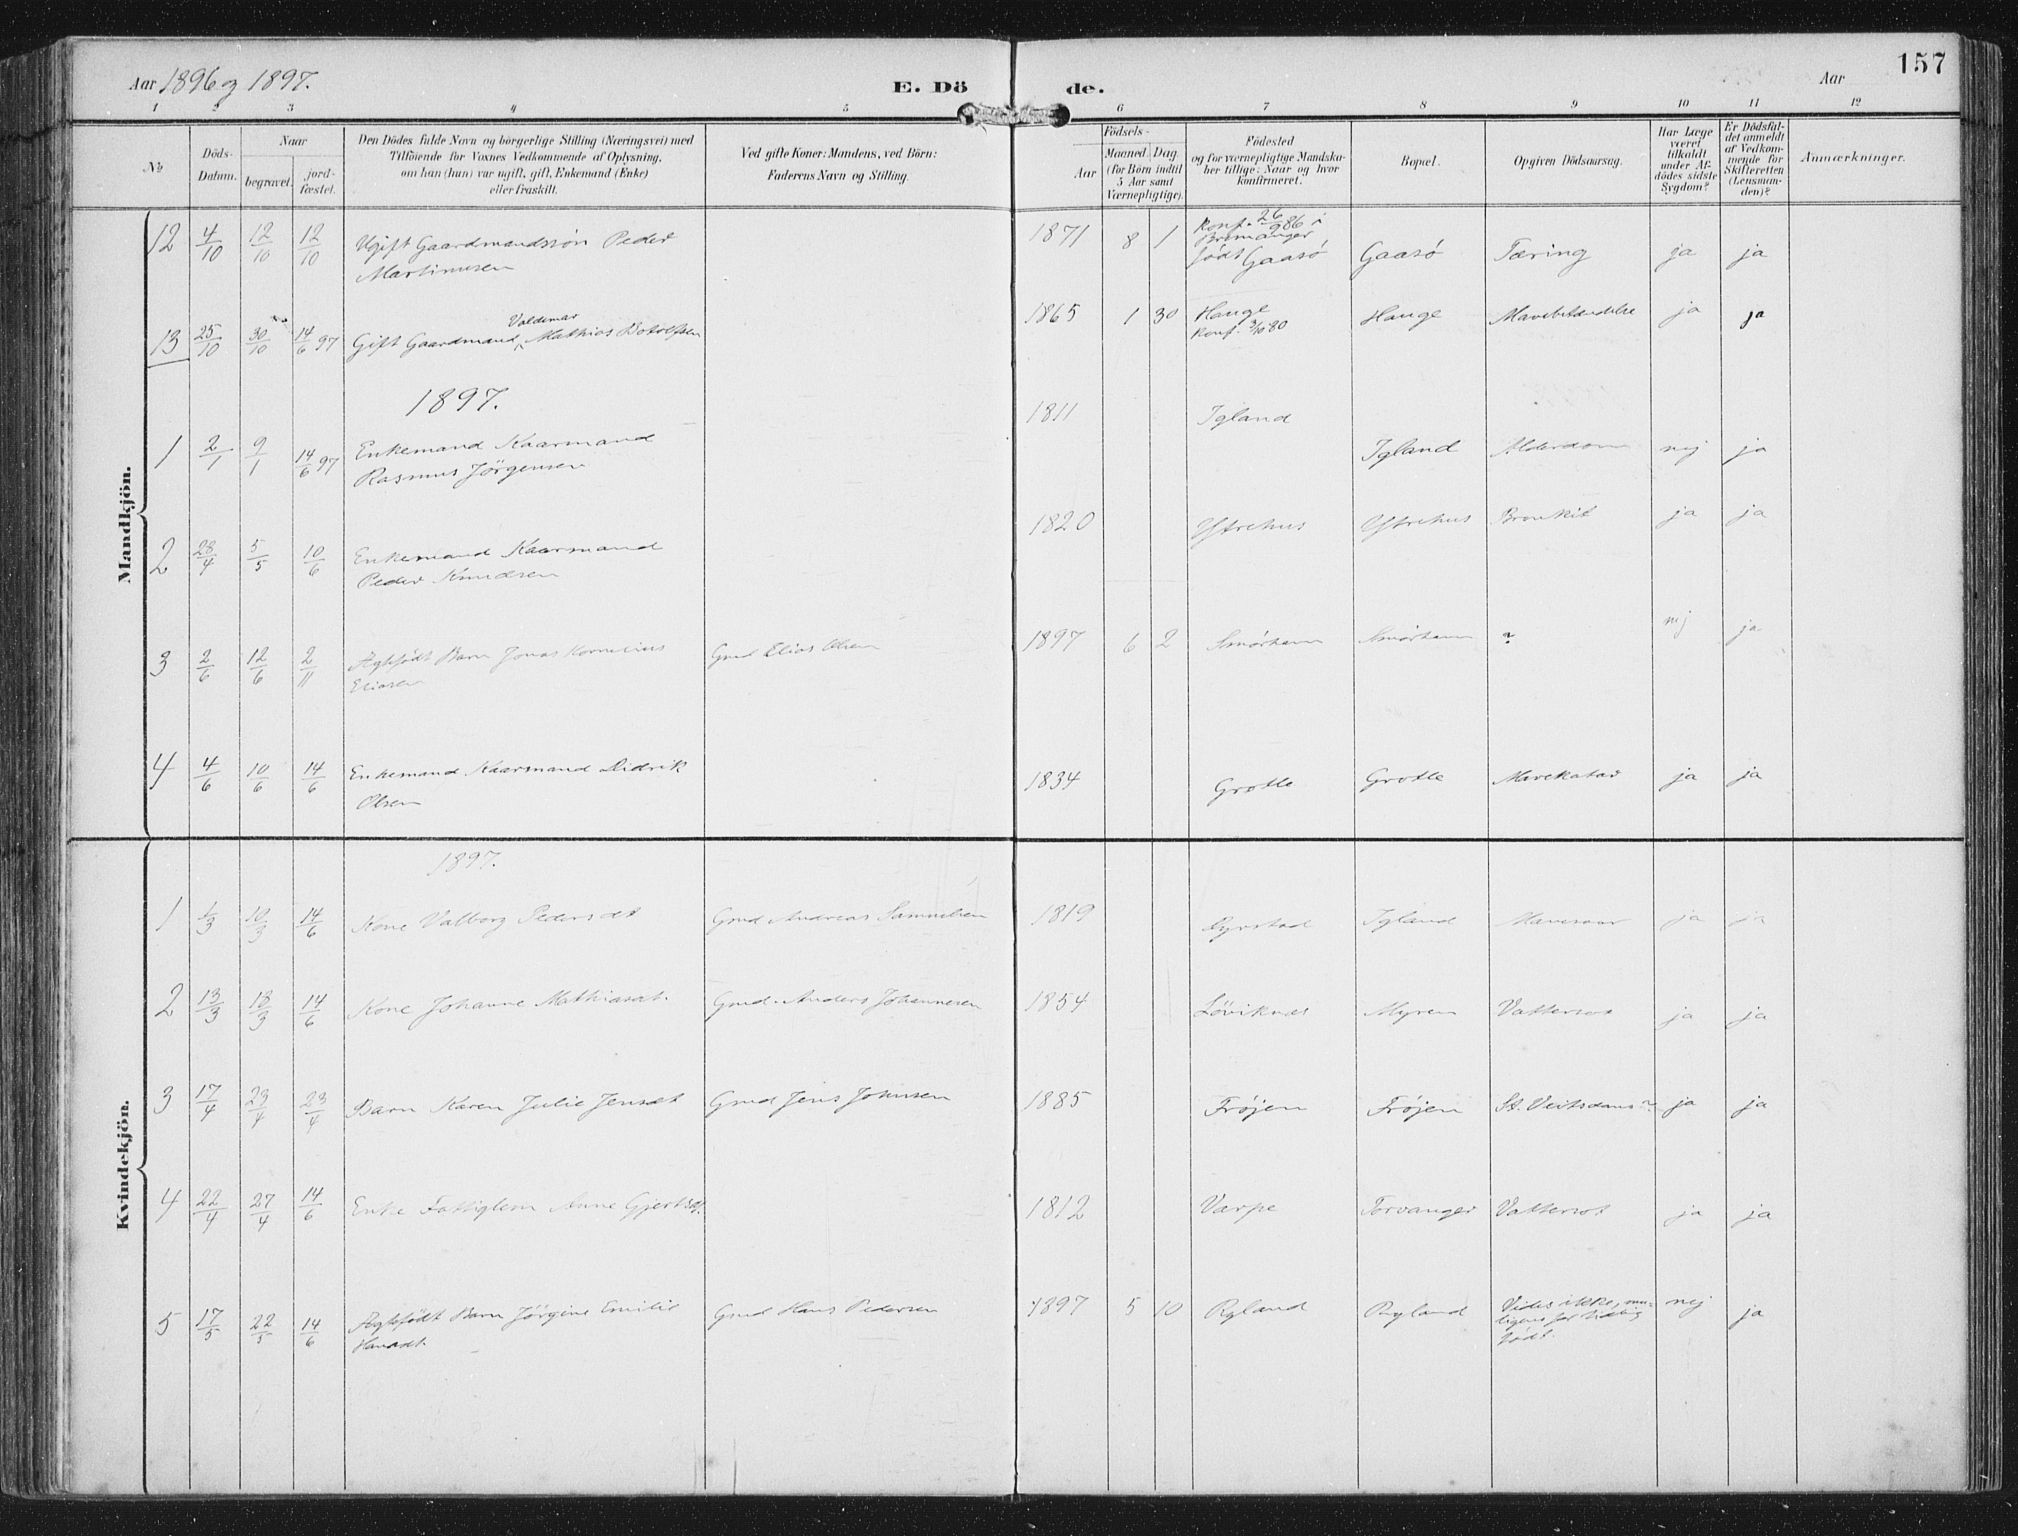 Aar 1896 og 1897.
E. Dö
de.
Aar
157
1 2 3 4 5 6 7 8 9 10 11 12
No
Döds-
Datum.
Naar
begravet.
jord-
fæstet.
Den Dödes fulde Navn og borgerlige Stilling (Næringsvei) med
Tilföiende for Voxnes Vedkommende af Oplysning,
om han (hun) var ugift, gift, Enkemand (Enke)
eller fraskilt.
Ved gifte Koner: Mandens, ved Börn:
Faderens Navn og Stilling.
Födsels-
Aar
Maaned. Dag.
(for Börn indtil
5 Aar samt
Værnepligtige).
Födested
og for værnepligtige Mandska-
ber tillige: Naar og hvor
konfirmeret.
Bopæl.
Opgiven Dödsaarsag.
Har Læge
været
tilkaldt
under Af-
dödes sidste
Sygdom?
Er Dödsfal-
det anmeldt
af Vedkom-
mende for
Skifteretten
(Lensman-
den)?
Anmærkninger.
Mandkjön.
12 4/10 12/10 12/10 Ugift Gaardmandssön Peder
Martinusen
1871 8 1 Konf. 26/9 86 i
Bremanger
født Gaasö Gaasö Tæring ja ja
13 25/10 30/10 14/6 97 Gift Gaardmand Valdemar Mathias Botolfsen
1865 1 30 Hauge
Konf. 3/10 80 Hauge Mavebetændelse ja ja
1897.
1 2/1 9/1 14/6 97 Enkemand Kaarmand
Rasmus Jörgensen
1811 Igland Igland Alderdom nej ja
2 28/4 5/5 10/6 Enkemand Kaarmand
Peder Knudsen
1820 Ytrehus Ytrehus Bronkit ja ja
3 2/6 12/6 2/11 Ægtefödt Barn Jonas Kornelius
Eliasen
Gmd Elias Olsen 1897 6 2 Smörhavn Smörhavn ? nej ja
4 4/6 10/6 14/6 Enkemand Kaarmand Didrik
Olsen
1834 Grotle Grotle Mavekatar ja ja
Kvindekjön.
1897.
1 1/3 10/3 14/6 Kone Valborg Pedersdt Gmd Andreas Samuelsen 1819 Dyrstad Igland Mavesaar ja ja
2 13/3 18/3 14/6 Kone Johanne Mathiasdt. Gmd. Anders Johannesen 1854 Löviknæs Myren Vattersot ja ja
3 17/4 23/4 23/4 Barn Karen Julie Jensdt Gmd Jens Johnsen 1885 Fröjen Fröjen St. Veitsdans? ja ja
4 22/4 27/4 14/6 Enke Fattiglem Anne Gjertsdt. 1812 Varpe Torvanger Vattersot ja ja
5 17/5 22/5 14/6 Ægtefödt Barn Jörgine Emilie
Hansdt.
Gmd Hans Pedersen 1897 5 10 Ryland Ryland Vides ikke, mu-
ligens for tidlig
född. nej ja